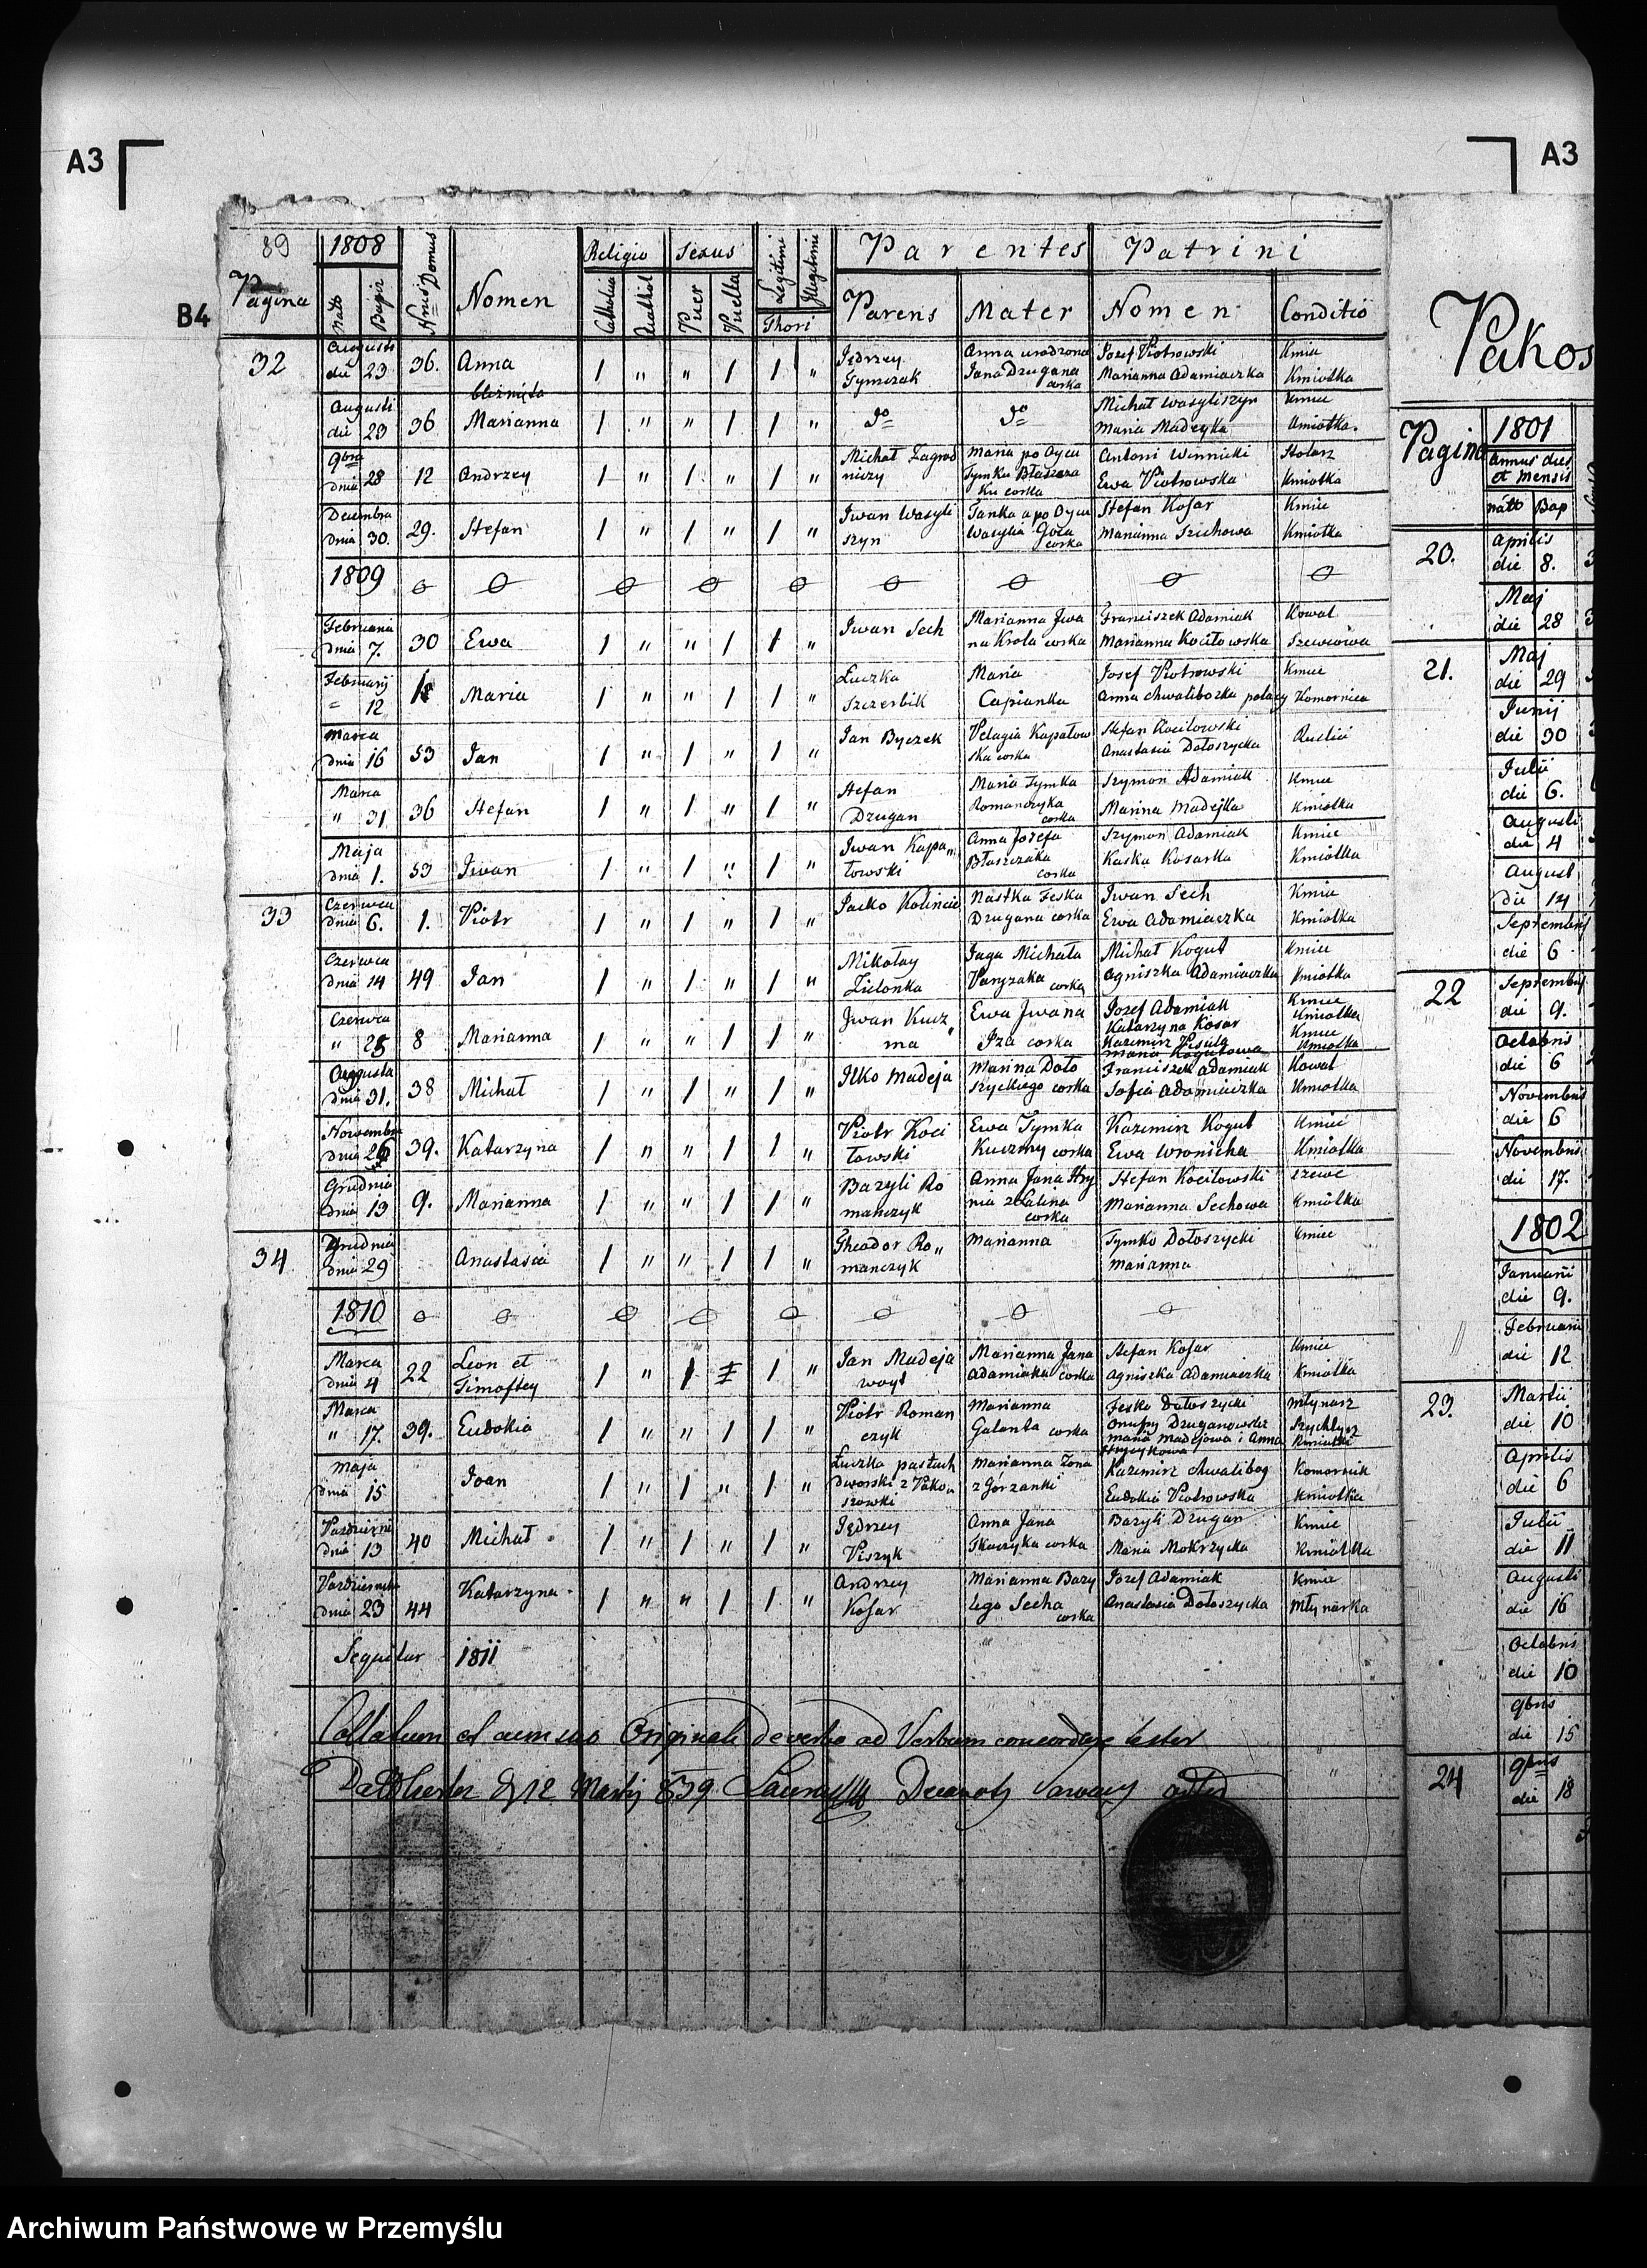 A3
A3
B4
89 1808 Religio Sexus Parentes Patrini
Pagina Natus Bapt Nrus Domus Nomen Catholica Puer Puella Legitimi Illegitimi Thori Parens Mater Nomen Conditio
32 Augusti die 23 36. Anna 1 " " 1 1 " Jędrzey Tymczak Anna urodzona Jana Drugana corka Jozef Piotrowski Kmic
Marianna Adamiaczka Kmiotka
bliźnięta
Augusti die 23 36 Marianna 1 " " 1 1 " do do Michał Wasyliszyn Kmiec
Maria Madeyka Kmiotka.
9bra dnia 28 12 Andrzey 1 " 1 " 1 " Michał Zagrodniczy Maria po Oycu Tymku Błaszczaku corka Antoni Winnicki Stolarz
Ewa Piotrowska Kmiotka
Decembra dnia 30. 29. Stefan 1 " 1 " 1 " Iwan Wasyliszyn Tanka a po Oycu Wasylia Goza corka Stefan Kosar Kmiec
Marianna Szichowa Kmiotka
1809
Februaria dnia 7. 30 Ewa 1 " " 1 1 " Iwan Sech Marianna Iwana Krola corka Franciszek Adamiak Kowal
Marianna Kociłowska Szewcowa
Februarij " 12 Maria 1 " " 1 1 " Łuczka Szczerbik Maria Capianka Josef Piotrowski Kmiec
Anna Chwaliboska Komornica
Marca dnia 16 53 Jan 1 " 1 " 1 " Jan Byczek Pelagia Kapałowska corka Stefan Kocilowski
Anastasia Dołoszycka
Marca " 31 36 Stefan 1 " 1 " 1 " Stefan Drugan Maria Tymka Romanczyka corka Szymon Adamiak Kmiec
Marina Madejka Kmiotka
Maja dnia 1. 53 Iwan 1 " 1 " 1 " Iwan Kapałowski Anna Jozefa Błaszczaka corka Szymon Adamiak Kmiec
Kaska Kosarka Kmiotka
33 Czerwca dnia 6. 1. Piotr 1 " 1 " 1 " Jacko Nastka Feska Drugana corka Iwan Sech Kmic
Ewa Adamiaczka Kmiotka
Czerwca dnia 14 49 Jan 1 " 1 " 1 " Mikołay Zielonka Jaga Michała corka Michał Kogut Kmiec
Agniszka Adamiaczka Kmiotka
Czerwca " 25 8 Marianna 1 " " 1 1 " Iwan Kuczma Ewa Iwana Iza corka Jozef Adamiak Kmiec
Katarzyna Kosar Kmiotka
Kazimirz Kmiec
Maria Kogutowa Kmiotka
Augusta dnia 31. 38 Michał 1 " 1 " 1 " Ilko Madeja Marina Dołoszyckiego corka Franciszek Adamiak Kowal
Sofia Adamiaczka Kmiotka
Novembra dnia 26 39. Katarzyna 1 " " 1 1 " Piotr Kociłowski Ewa Tymka Kuczmy corka Kazimirz Kogut Kmieć
Ewa Wronicka Kmiotka
Grudnia dnia 13 9. Marianna 1 " " 1 1 " Bazyli Romanczyk Anna Jana Hrynia corka Stefan Kocilowski szewc
Marianna Sechowa Kmiotka
34 Grudnia dnia 29 Anastasia 1 " " 1 1 " Theodor Romanczyk Marianna Tymko Dołoszycki Kmiec
Marianna
1810
Marca dnia 4 22 Leon et Timoftey 1 " 1 1 " Jan Madeja woyt Marianna Jana Adamiaka corka Stefan Kosar Kmiec
Agniszka Adamiaczka Kmiotka
Marca " 17. 39. Eudokia 1 " " 1 1 " Piotr Romanczyk Marianna Galanta corka Fesko Dołoszycki Młynarz
Maria Madejowa i Anna
Maja dnia 15 Joan 1 " 1 " 1 " Łuczka pastuch dworski z Pakoszowki Marianna Żona z Górzanki Kazimirz Chwalibog Komornik
Eudokia Piotrowska Kmiotka
dnia 13 40 Michał 1 " 1 " 1 " Jędrzey Piszyk Anna Jana Tkaczyka corka Bazyli Drugan Kmiec
Maria Mokrzycka Kmiotka
dnia 23 44 Katarzyna 1 " " 1 1 " Andrzey Kosar Marianna Bazylego Secha corka Jozef Adamiak Kmic
Anastasia Dołoszycka Młynarka
Sequitur 1811
Collatum et cum suo Originali de verbo ad Verbum concordare testor
12 Martij 839
Pakos
Pagina 1801
Annus dies et mensis
natus Bap
20. Aprilis die 8.
Maj die 28
21. Maj die 29
Junij die 30
Julii die 6.
Augusti die 4
August die 14
Septembris die 6
22 Septembris die 9.
Octobris die 6
Novembris die 6
Novembris die 17.
1802
Januarii die 9.
Februarii die 12
23. Martii die 10
Aprilis die 6
Julii die 11
Augusti die 16
Octobris die 10
9bris die 15
24 9bris die 18
Archiwum Państwowe w Przemyślu